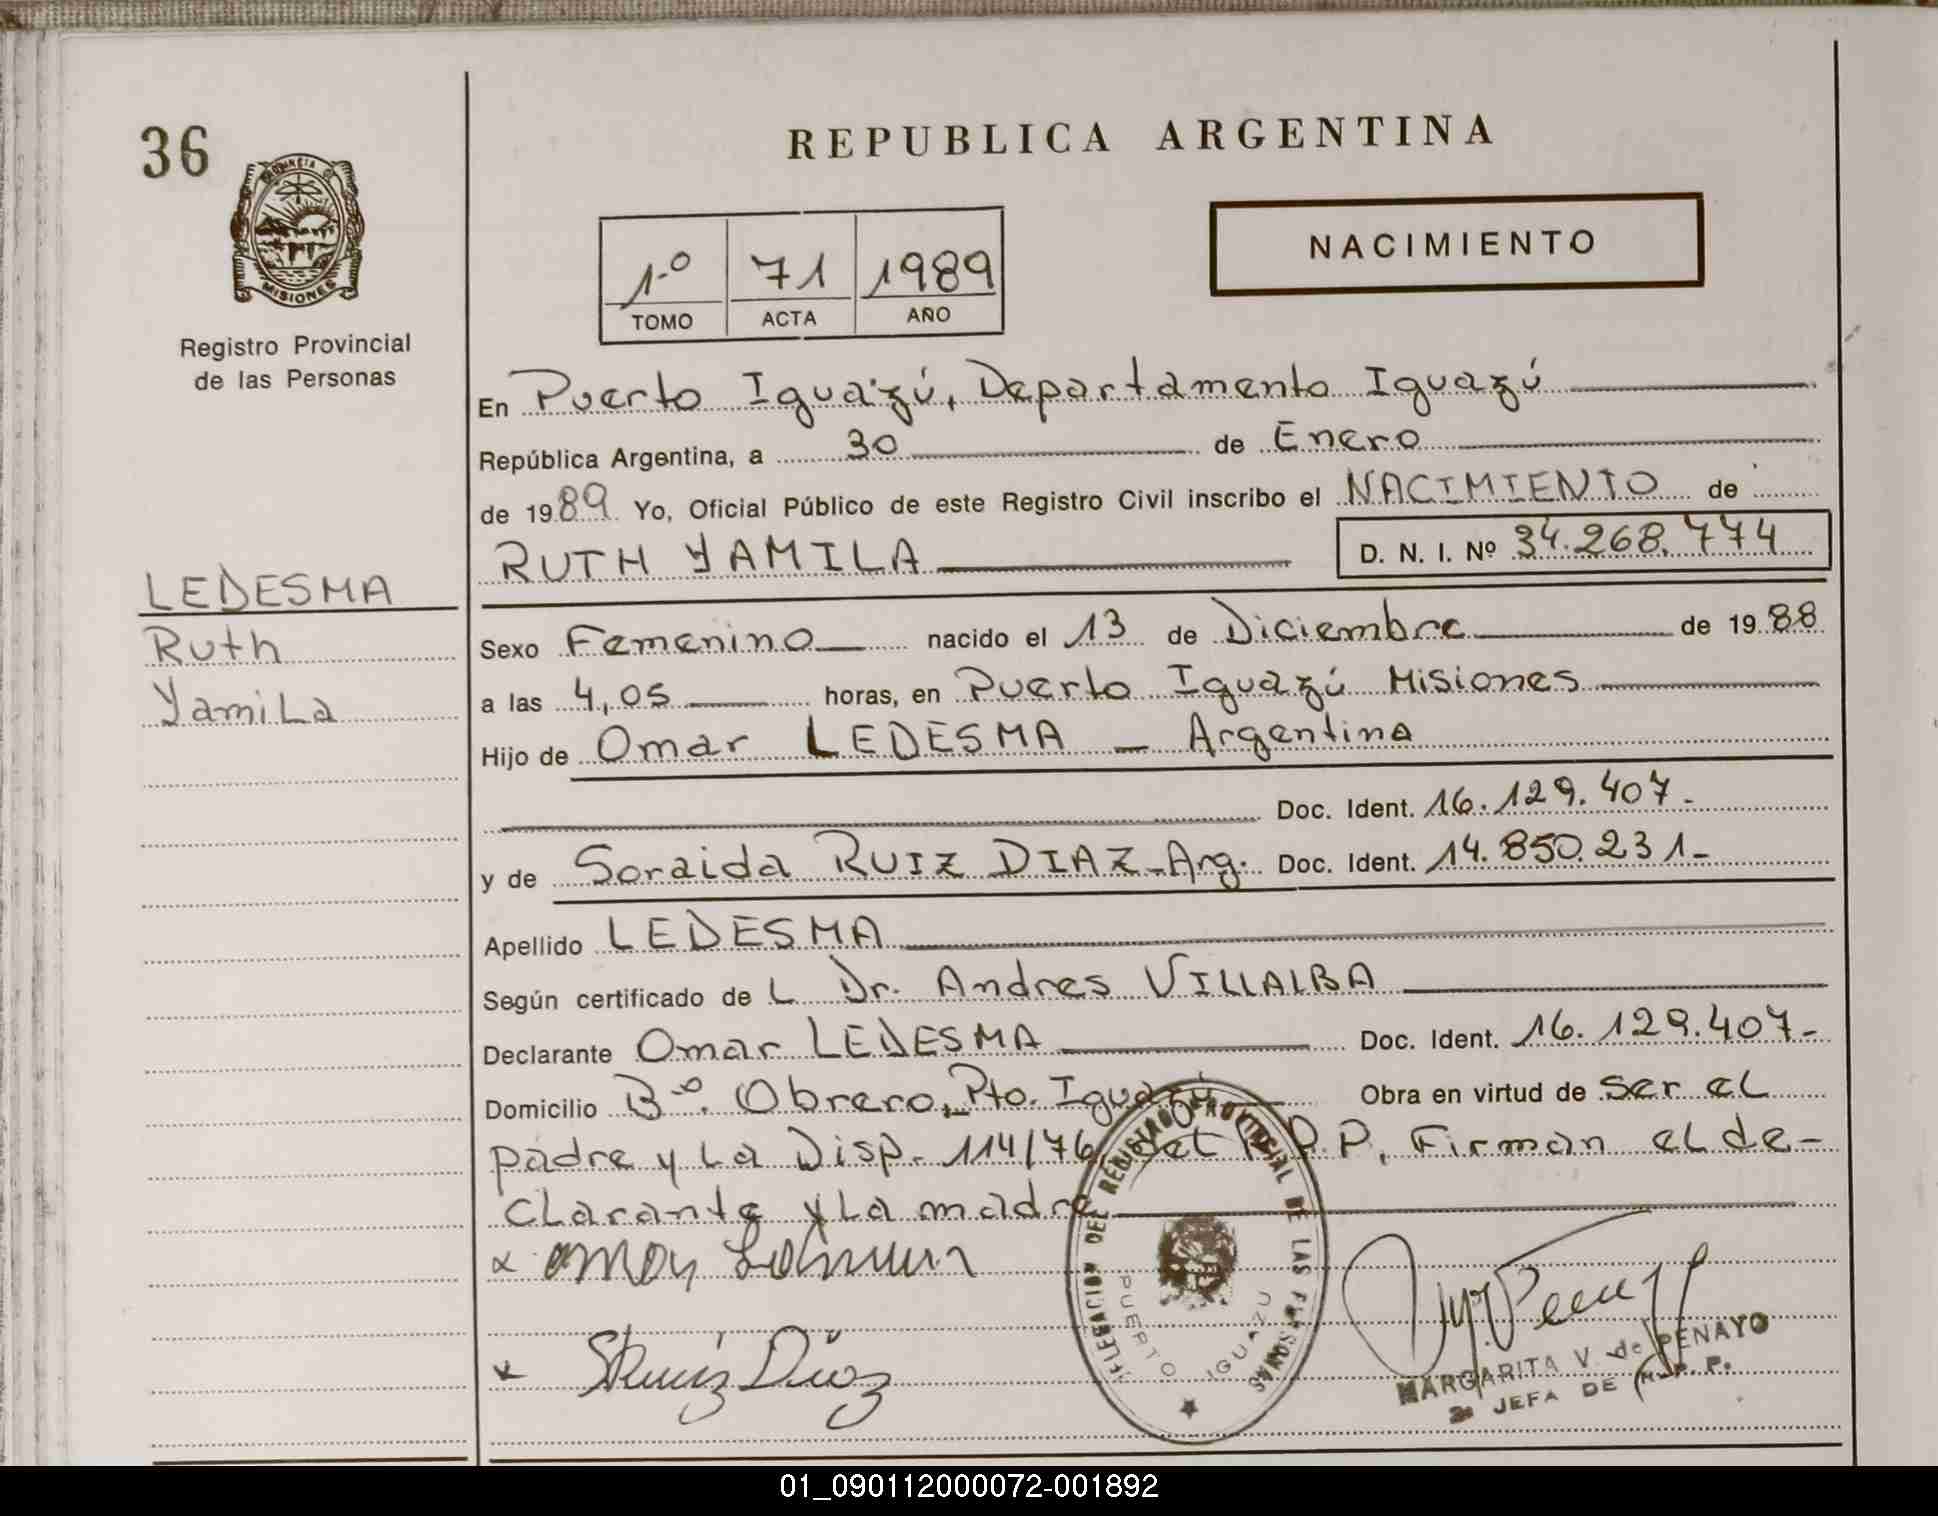 36
REPUBLICA ARGENTINA
PROVINCIA
MISIONES
Registro Provincial
de las Personas
1º 71 1989
TOMO ACTA AÑO
NACIMIENTO
En Puerto Iguazú, Departamento Iguazú
República Argentina, a 30 de Enero
de 1989 Yo, Oficial Público de este Registro Civil inscribo el NACIMIENTO de
RUTH YAMILA D. N. I. Nº 34.268.774
LEDESMA
Ruth
Yamila
Sexo Femenino nacido el 13 de Diciembre de 1988
a las 4,05 horas, en Puerto Iguazú Misiones
Hijo de Omar LEDESMA - Argentina
Doc. Ident. 16.129.407-
y de Soraida RUIZ DIAZ-Arg. Doc. Ident. 14.850.231-
Apellido LEDESMA
Según certificado de L Dr. Andres VILLALBA
Declarante Omar LEDESMA Doc. Ident. 16.129.407-
Domicilio Bº. Obrero, Pto. Iguazú Obra en virtud de ser el
padre y la Disp. 114/76 del R.P.P, Firman el de-
clarante y la madre
DELEGACION DEL REGISTRO PROVINCIAL DE LAS PERSONAS
PUERTO IGUAZU
SRuiz Diaz
MARGARITA V. de PENAYO
JEFA DE R.P.P.
01_090112000072-001892